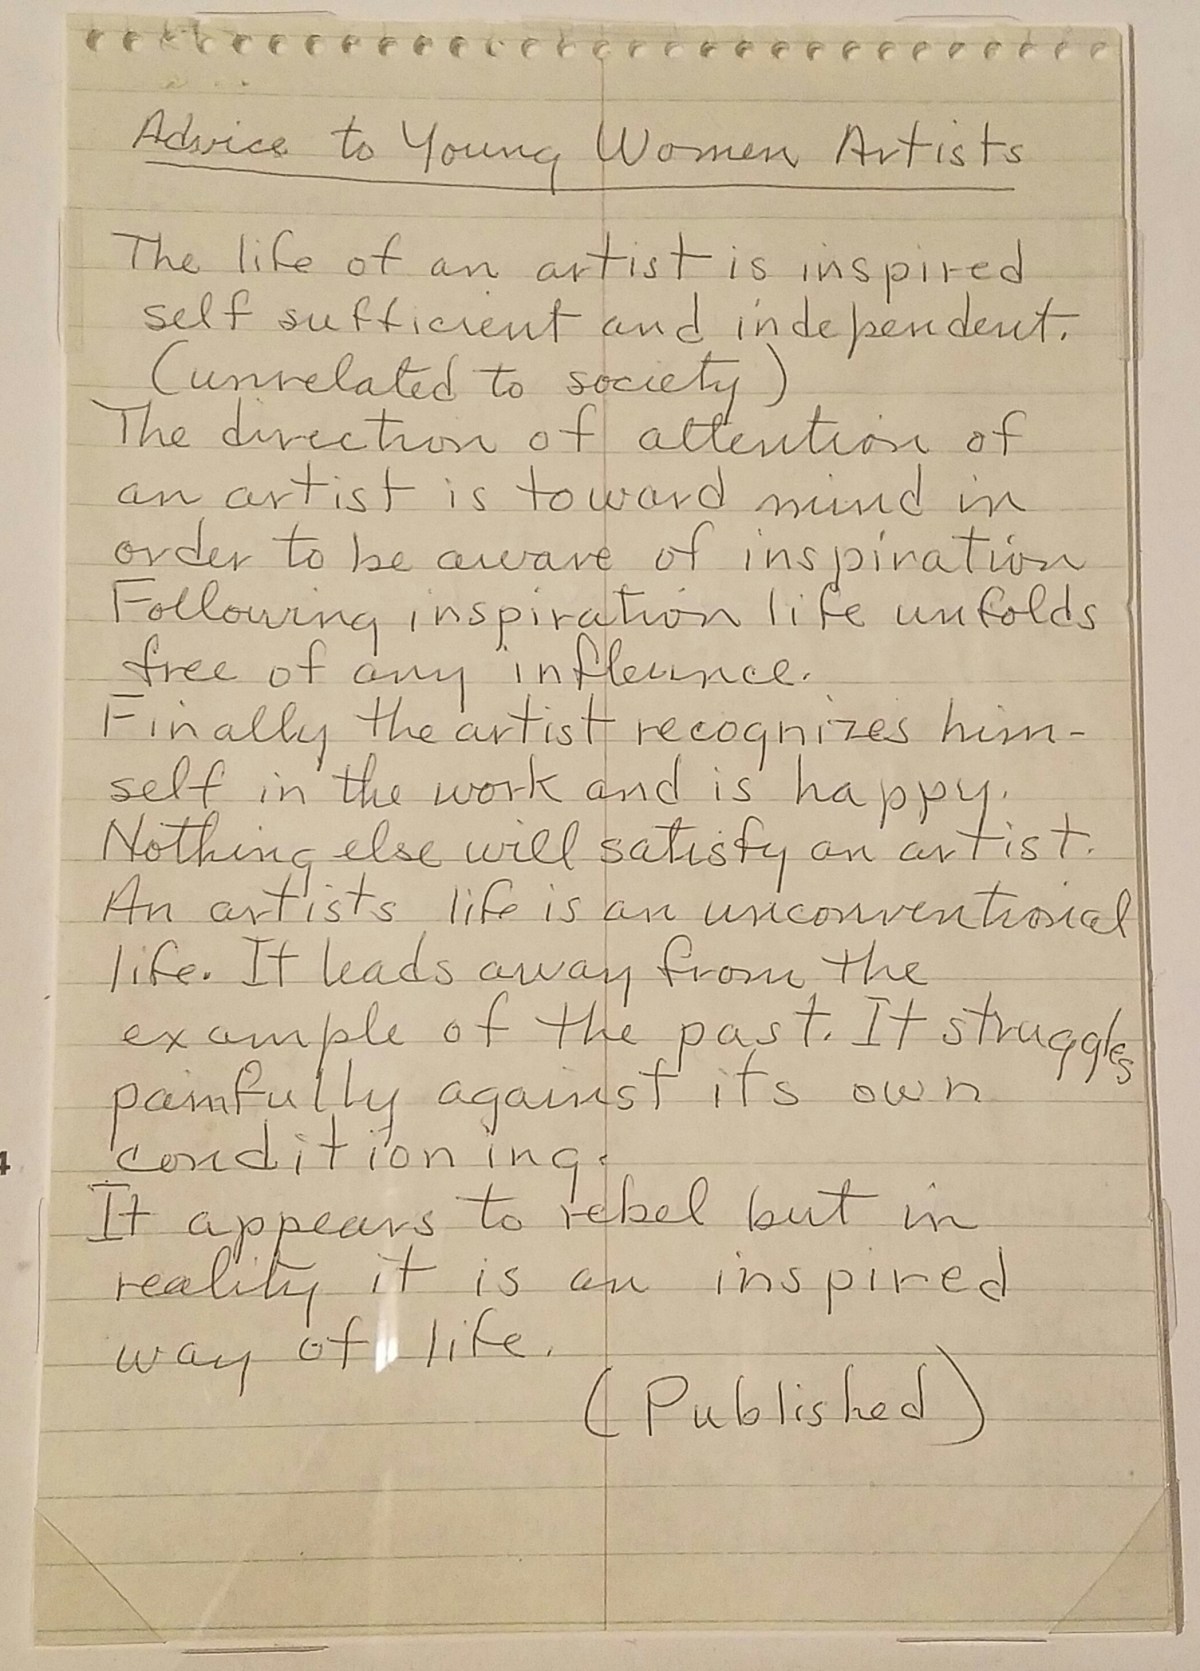 Advice to Young Women Artists
The life of an artist is inspired
self sufficient and independent.
(unrelated to society)
The direction of attention of
an artist is toward mind in
order to be aware of inspiration
Following inspiration life unfolds
free of any influence.
Finally the artist recognizes him-
self in the work and is happy.
Nothing else will satisfy an artist.
An artists life is an unconventional
life. It leads away from the
example of the past. It struggles
painfully against its own
conditioning.
It appears to rebel but in
reality it is an inspired
way of life.
(Published)
4